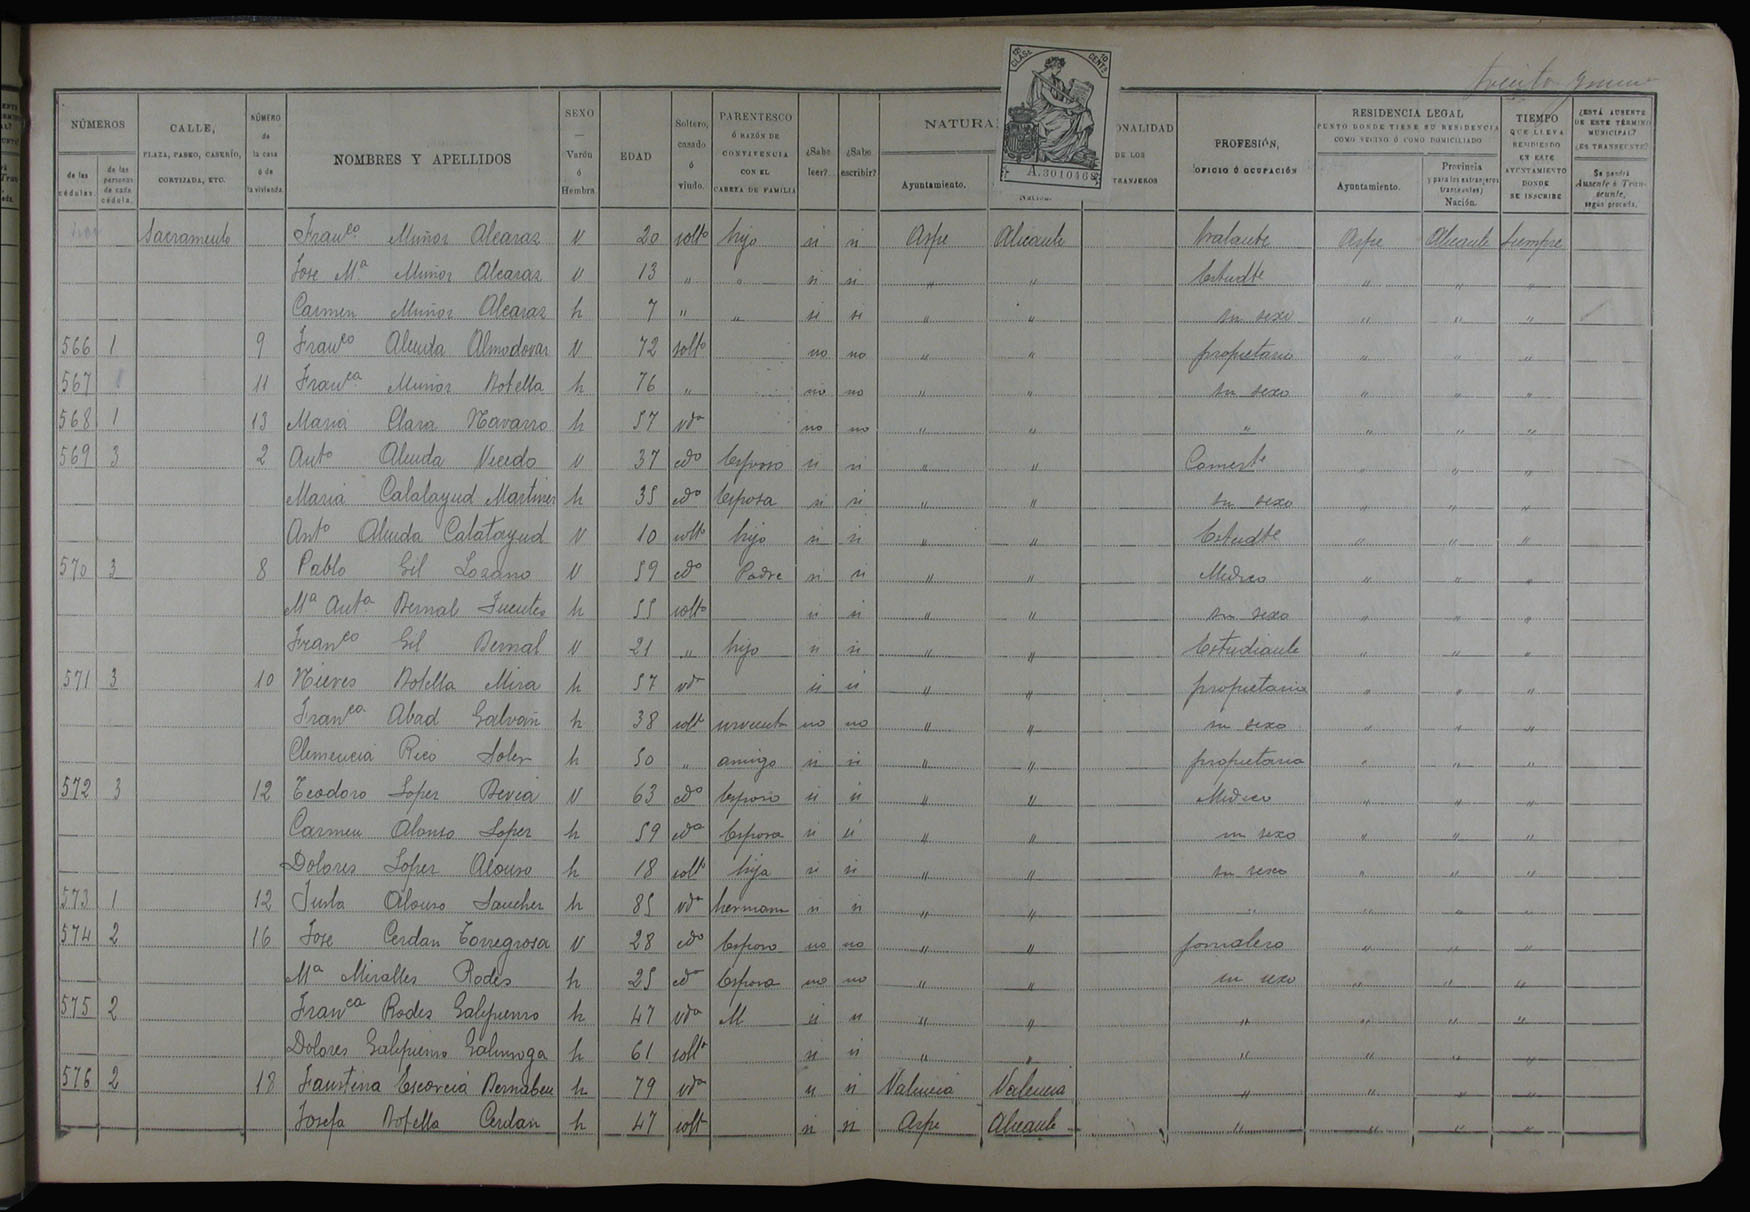 treinta y nueve
NÚMEROS
de las cédulas.
de las personas de cada cédula.
CALLE,
PLAZA, PASEO, CASERÍO,
CORTIJADA, ETC.
NÚMERO
de
la casa
ó de
la vivienda.
NOMBRES Y APELLIDOS
SEXO
—
Varón
ó
Hembra.
EDAD
Soltero,
casado
ó
viudo.
PARENTESCO
Ó RAZÓN DE
CONVIVENCIA
CON EL
CABEZA DE FAMILIA
¿Sabe
leer?
¿Sabe
escribir?
NATURA
Ayuntamiento.
8ª CLASE 10 CENTS.
A.3010468
ONALIDAD
DE LOS
TRANJEROS
PROFESIÓN,
OFICIO Ó OCUPACIÓN
RESIDENCIA LEGAL
PUNTO DONDE TIENE SU RESIDENCIA
COMO VECINO Ó COMO DOMICILIADO
Ayuntamiento.
Provincia
(y para los extranjeros
transeuntes)
Nación.
TIEMPO
QUE LLEVA
RESIDIENDO
EN ESTE
AYUNTAMIENTO
DONDE
SE INSCRIBE
¿ESTÁ AUSENTE
DE ESTE TÉRMINO
MUNICIPAL?
¿ES TRANSEUNTE?
Se pondrá
Ausente ó Tran-
seunte,
según proceda.
Sacramento Franco Muñoz Alcaraz V 20 solto hijo si si Aspe Alicante tratante Aspe Alicante Siempre
Jose Mª Muñoz Alcaraz V 13 " " si si " " Estudte " " "
Carmen Muñoz Alcaraz h 7 " " si si " " su sexo " " "
566 1 9 Franco Alenda Almodovar V 72 solto no no " " propietario " " "
567 1 11 Franca Muñoz Botella h 76 " no no " " su sexo " " "
568 1 13 Maria Clara Navarro h 57 vda no no " " " " " "
569 3 2 Anto Alenda Vicedo V 37 cdo Esposo si si " " Comerte " " "
Maria Calatayud Martinez h 35 cdo Esposa si si " " su sexo " " "
Anto Alenda Calatayud V 10 solto hijo si si " " Estudte " " "
570 3 8 Pablo Gil Lozano V 59 cdo Padre si si " " Medico " " "
Mª Anta Bernal Fuentes h 55 solto si si " " su sexo " " "
Franco Gil Bernal V 21 " hijo si si " " Estudiante " " "
571 3 10 Nieves Botella Mira h 57 vda si si " " propietaria " " "
Franca Abad Galvañ h 38 solt sirvienta no no " " su sexo " " "
Clemencia Rico Soler h 50 " amiga si si " " propietaria " " "
572 3 12 Teodoro Lopez Bevia V 63 cdo Esposo si si " " Medico " " "
Carmen Alonso Lopez h 59 cda Esposa si si " " su sexo " " "
Dolores Lopez Alonso h 18 solt hija si si " " su sexo " " "
573 1 12 Justa Alonso Sanchez h 85 vda hermana si si " " " " " "
574 2 16 Jose Cerdan Torregrosa V 28 cdo Esposo no no " " jornalero " " "
Mª Miralles Rodes h 25 cda Esposa no no " " su sexo " " "
575 2 Franca Rodes Galipienso h 47 vda M si si " " " " " "
Dolores Galipienso h 61 solt si si " " " " " "
576 2 18 Faustina Escorcia Bernabeu h 79 vda si si Valencia Valencia " " " "
Josefa Botella Cerdan h 47 solt si si Aspe Alicante " " " "